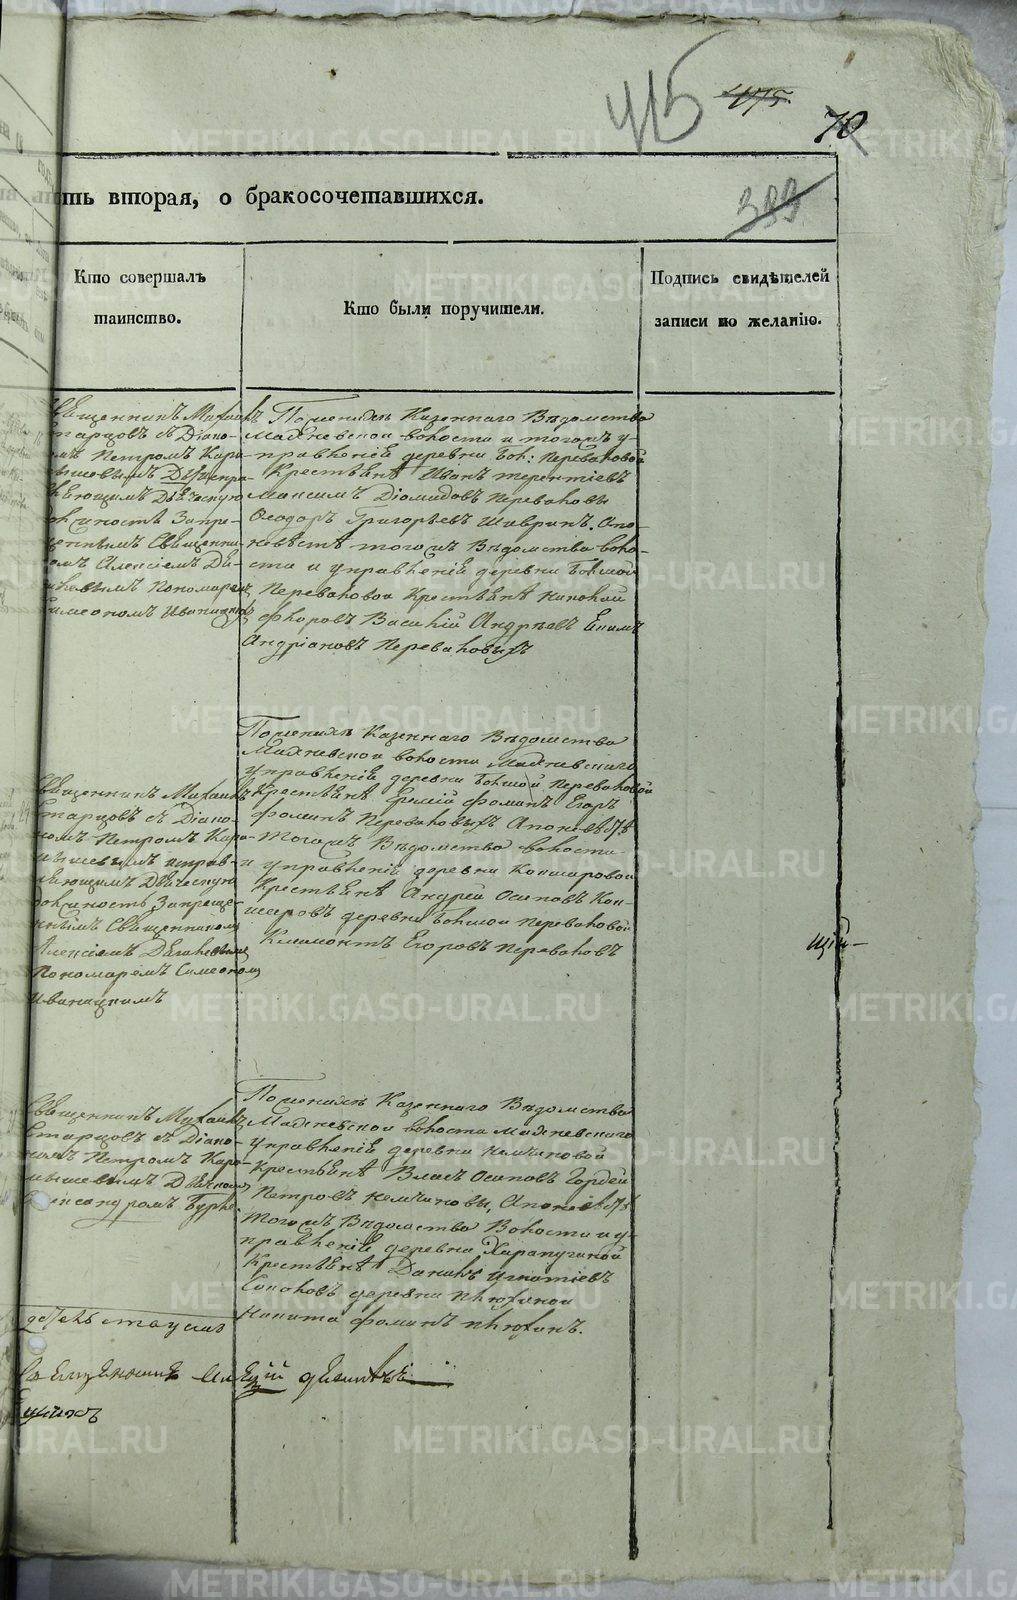 415
475.
70
389
сть вторая, о бракосочетавшихся.
Кто совершалъ
таинство.
Кто были поручители.
Подпись свидѣтелей
записи по желанію.
Священникъ Михаилъ
Старцовъ съ Діако-
номъ Петромъ Кара-
мышевымъ
Дьяческую
должность Запре-
щеннымъ Священни-
комъ Алексіемъ
Пономаремъ
Симеономъ Иваницкимъ
По женихѣ Казеннаго Вѣдомства
Махневской волости и тогожъ у-
правленія деревни Бол: Переваловой
Крестьяне Иванъ Терентіевъ
Максимъ Діомидовъ Переваловы
Ѳеодоръ Григорьевъ Шавринъ. А по
невѣстѣ того жъ Вѣдомства воло-
сти и управленія деревни Большой
Переваловой Крестьяне Николай
Флоровъ Василій Андреевъ Екимъ
Андріановъ Переваловыхъ
Священникъ Михаилъ
Старцовъ съ Діако-
номъ Петромъ Кара-
мышевымъ исправ-
ляющимъ Дьяческую
должность Запреще-
ннымъ Священникомъ
Алексіемъ
Пономаремъ Симеономъ
Иваницкимъ
По женихѣ Казеннаго Вѣдомства
Махневской волости Махневскаго
управленія деревни Большой Переваловой
Крестьяне Фоминъ Егоръ
Фоминъ Переваловыхъ А по невѣстѣ
тогожъ Вѣдомства волости
и управленія деревни Кокшаровой
Крестьяне Андрей Осиповъ Кок-
шаровъ деревни Большой Переваловой
Климонтъ Егоровъ Переваловъ
щій
Священникъ Михаилъ
Старцовъ съ Діако-
номъ Петромъ Кара-
мышевымъ Дьячкомъ
Александромъ
По женихѣ Казеннаго Вѣдомства
Махневской волости Махневскаго
управленія деревни Кемчиновой
Крестьяне Власъ Осиповъ Гордей
Петровъ Кемчиновы, А по невѣстѣ
тогожъ Вѣдомства Волости и у-
правленія деревни Харапугиной
Крестьяне Данилъ Игнатіевъ
деревни Плюхиной
Никита Фоминъ Плюхинъ.